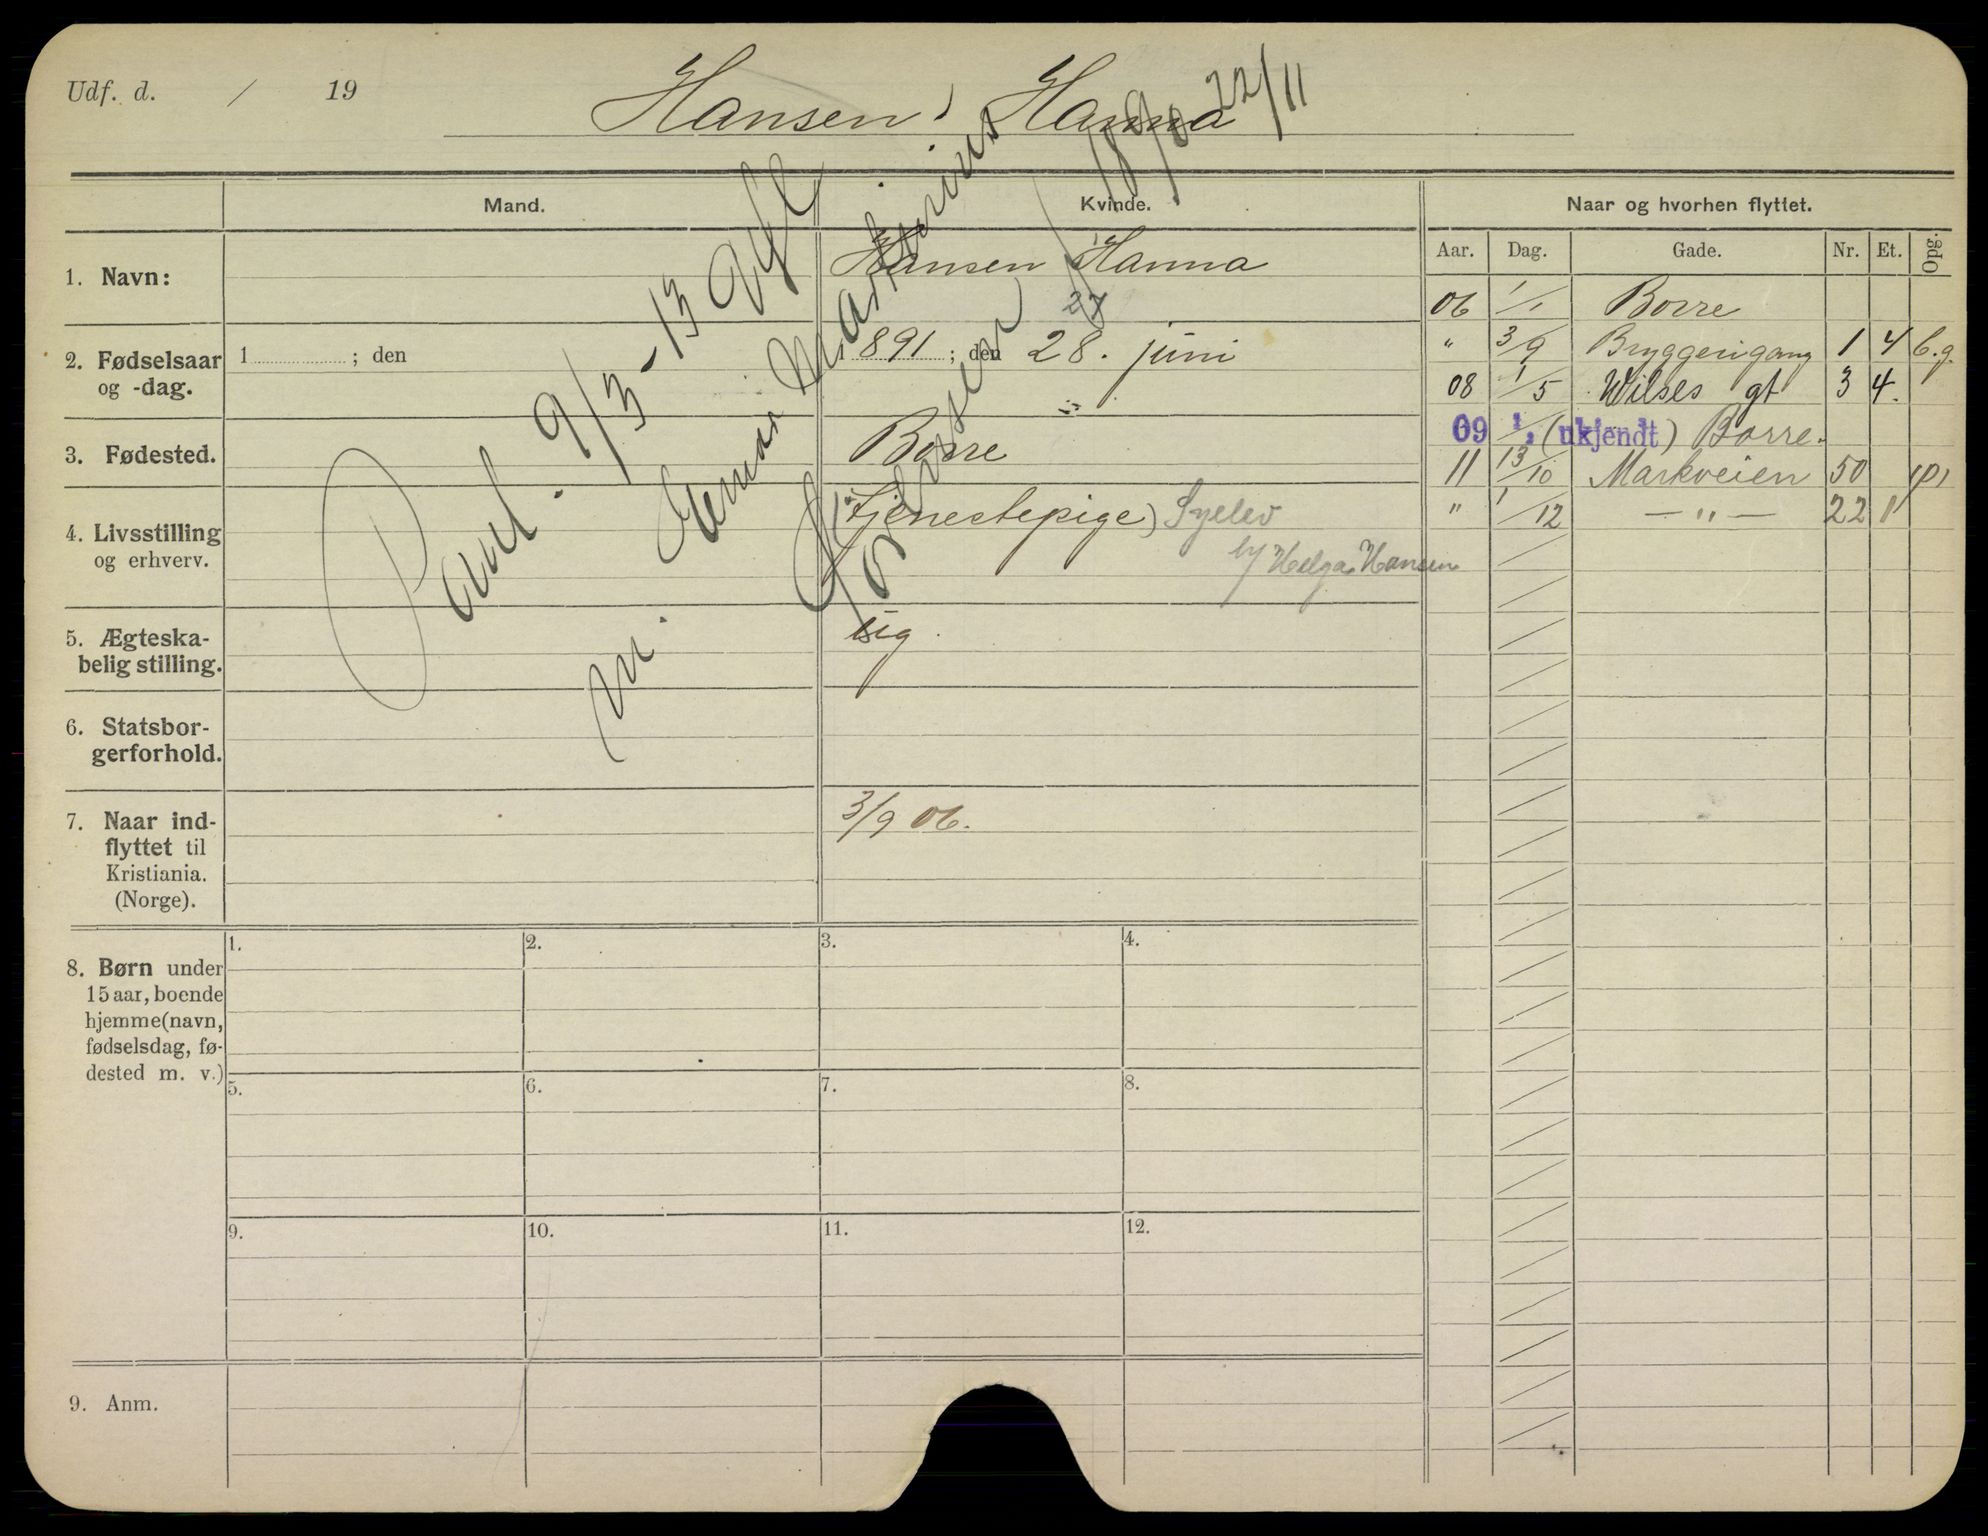 Udf. d. / 19
Hansen, Hanna
Mand.
Kvinde.
Naar og hvorhen flyttet.
Aar. Dag. Gade. Nr. Et. Opg.
1. Navn:
Hansen Hanna
2. Fødselsaar
og -dag.
1 ; den
1891 ; den 28. juni
27
3. Fødested.
Borre
4. Livsstilling
og erhverv.
(tjenestepige) Syelev
Helga Hansen
5. Ægteska-
belig stilling.
ug.
6. Statsbor-
gerforhold.
7. Naar ind-
flyttet til
Kristiania.
(Norge).
3/9 06.
8. Børn under
15 aar, boende
hjemme (navn,
fødselsdag, fø-
dested m. v.)
1. 2. 3. 4.
5. 6. 7. 8.
9. 10. 11. 12.
9. Anm.
06 1/1 Borre
" 3/9 Bryggerigang 1 4 b.g.
08 1/5 Wilses gt 3 4.
09 1/1 (ukjendt) Borre.
11 13/10 Markveien 50
" 1/12 — " — 22 1
Paul. 9/3 - 13 Gft
m. Einar Martinius
22/11